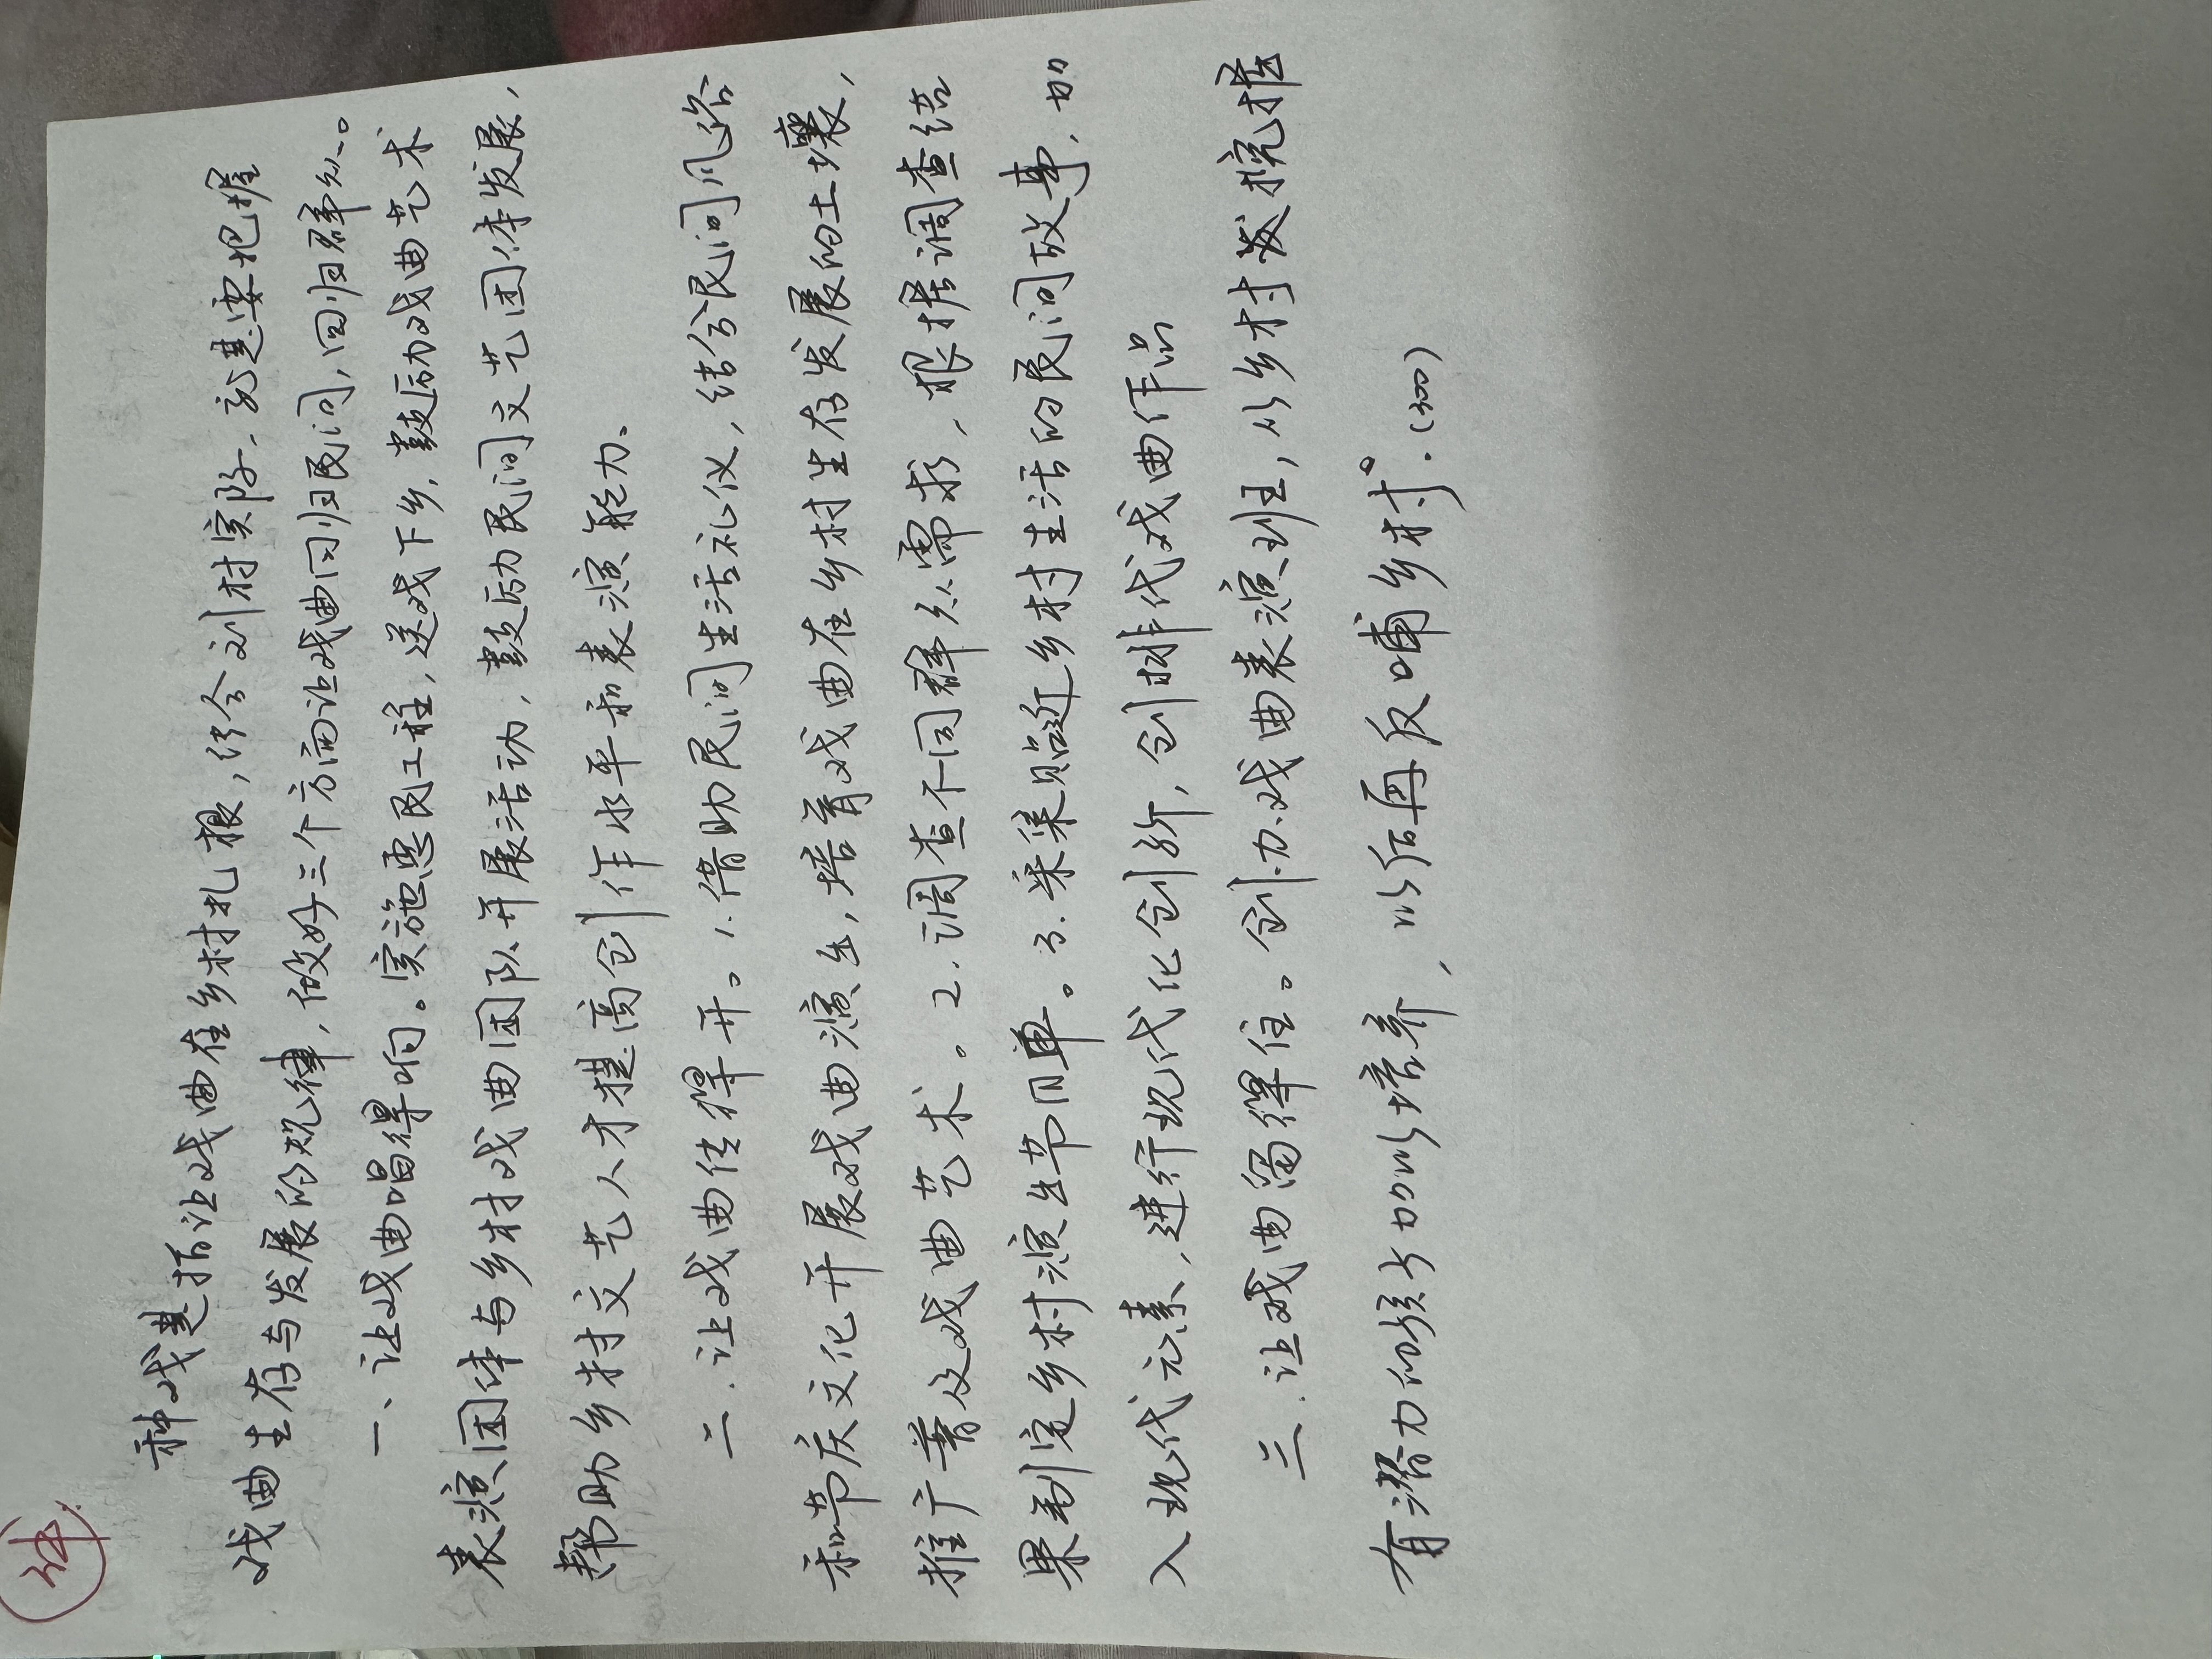 种戏是指让戏曲在乡村扎根，结合刘村实际，就是要把握
戏曲生存与发展的规律，做好三个方面让戏曲回归民间，回归群众。
一、让戏曲唱得响。实施惠民工程，送戏下乡，鼓励戏曲艺术
表演团体与乡村戏曲团队开展活动，鼓励民间文艺团体发展，
帮助乡村文艺人才提高创作水平和表演能力。
二．让戏曲传得开。1.借助民间生活礼仪，结合民间风俗
和节庆文化开展戏曲演出，培育戏曲在乡村生存发展的土壤，
推广普及戏曲艺术。2.调查不同群众需求，根据调查结
果制定乡村演出节目单。3.采集贴近乡村生活的民间故事，加
入现代元素，进行现代化创新，创排代戏曲作品
三．让戏曲留得住。创办戏曲表演班，从乡村发挖掘
有潜力的孩子加以培养，以后再反哺乡村。(300)